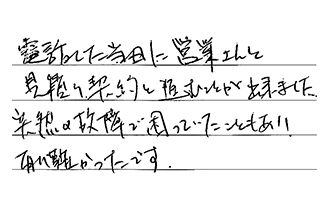 電話した当日に営業さんと
見積り、契約と進むことが出来ました。
突然の故障で困っていたこともあり
有難かったです.